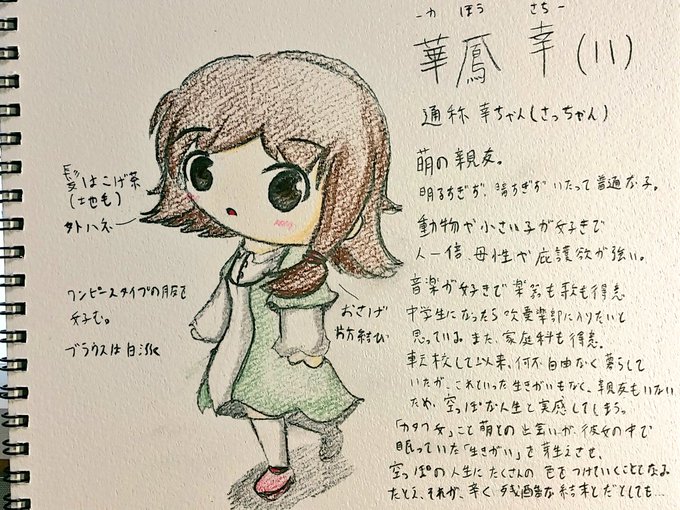 -か ほう さち-
華鳳 幸(11)
通称 幸ちゃん(さっちゃん)
萌の親友。
明るすぎず、陽すぎず いたって普通な子。
動物や小さい子が好きで
人一倍、母性や庇護欲が強い。
音楽が好きで楽器も歌も得意
中学生になったら吹奏楽部に入りたいと
思っている。また、家庭科も得意。
転校して以来、何不自由なく暮らして
いたが、これといった生きがいもなく、親友もいない
ため、空っぽな人生と実感してしまう。
「カタワ女」こと萌との出会いが、彼女の中で
眠っていた「生きがい」を芽生えさせ、
空っぽの人生にたくさんの色をつけていくこととなる
たとえ、それが、辛く残酷な結末だとしても…
髪はこげ茶
(地毛)
外ハネ
ワンピースタイプの服を
好む。
ブラウスは白
おさげ
片方結び